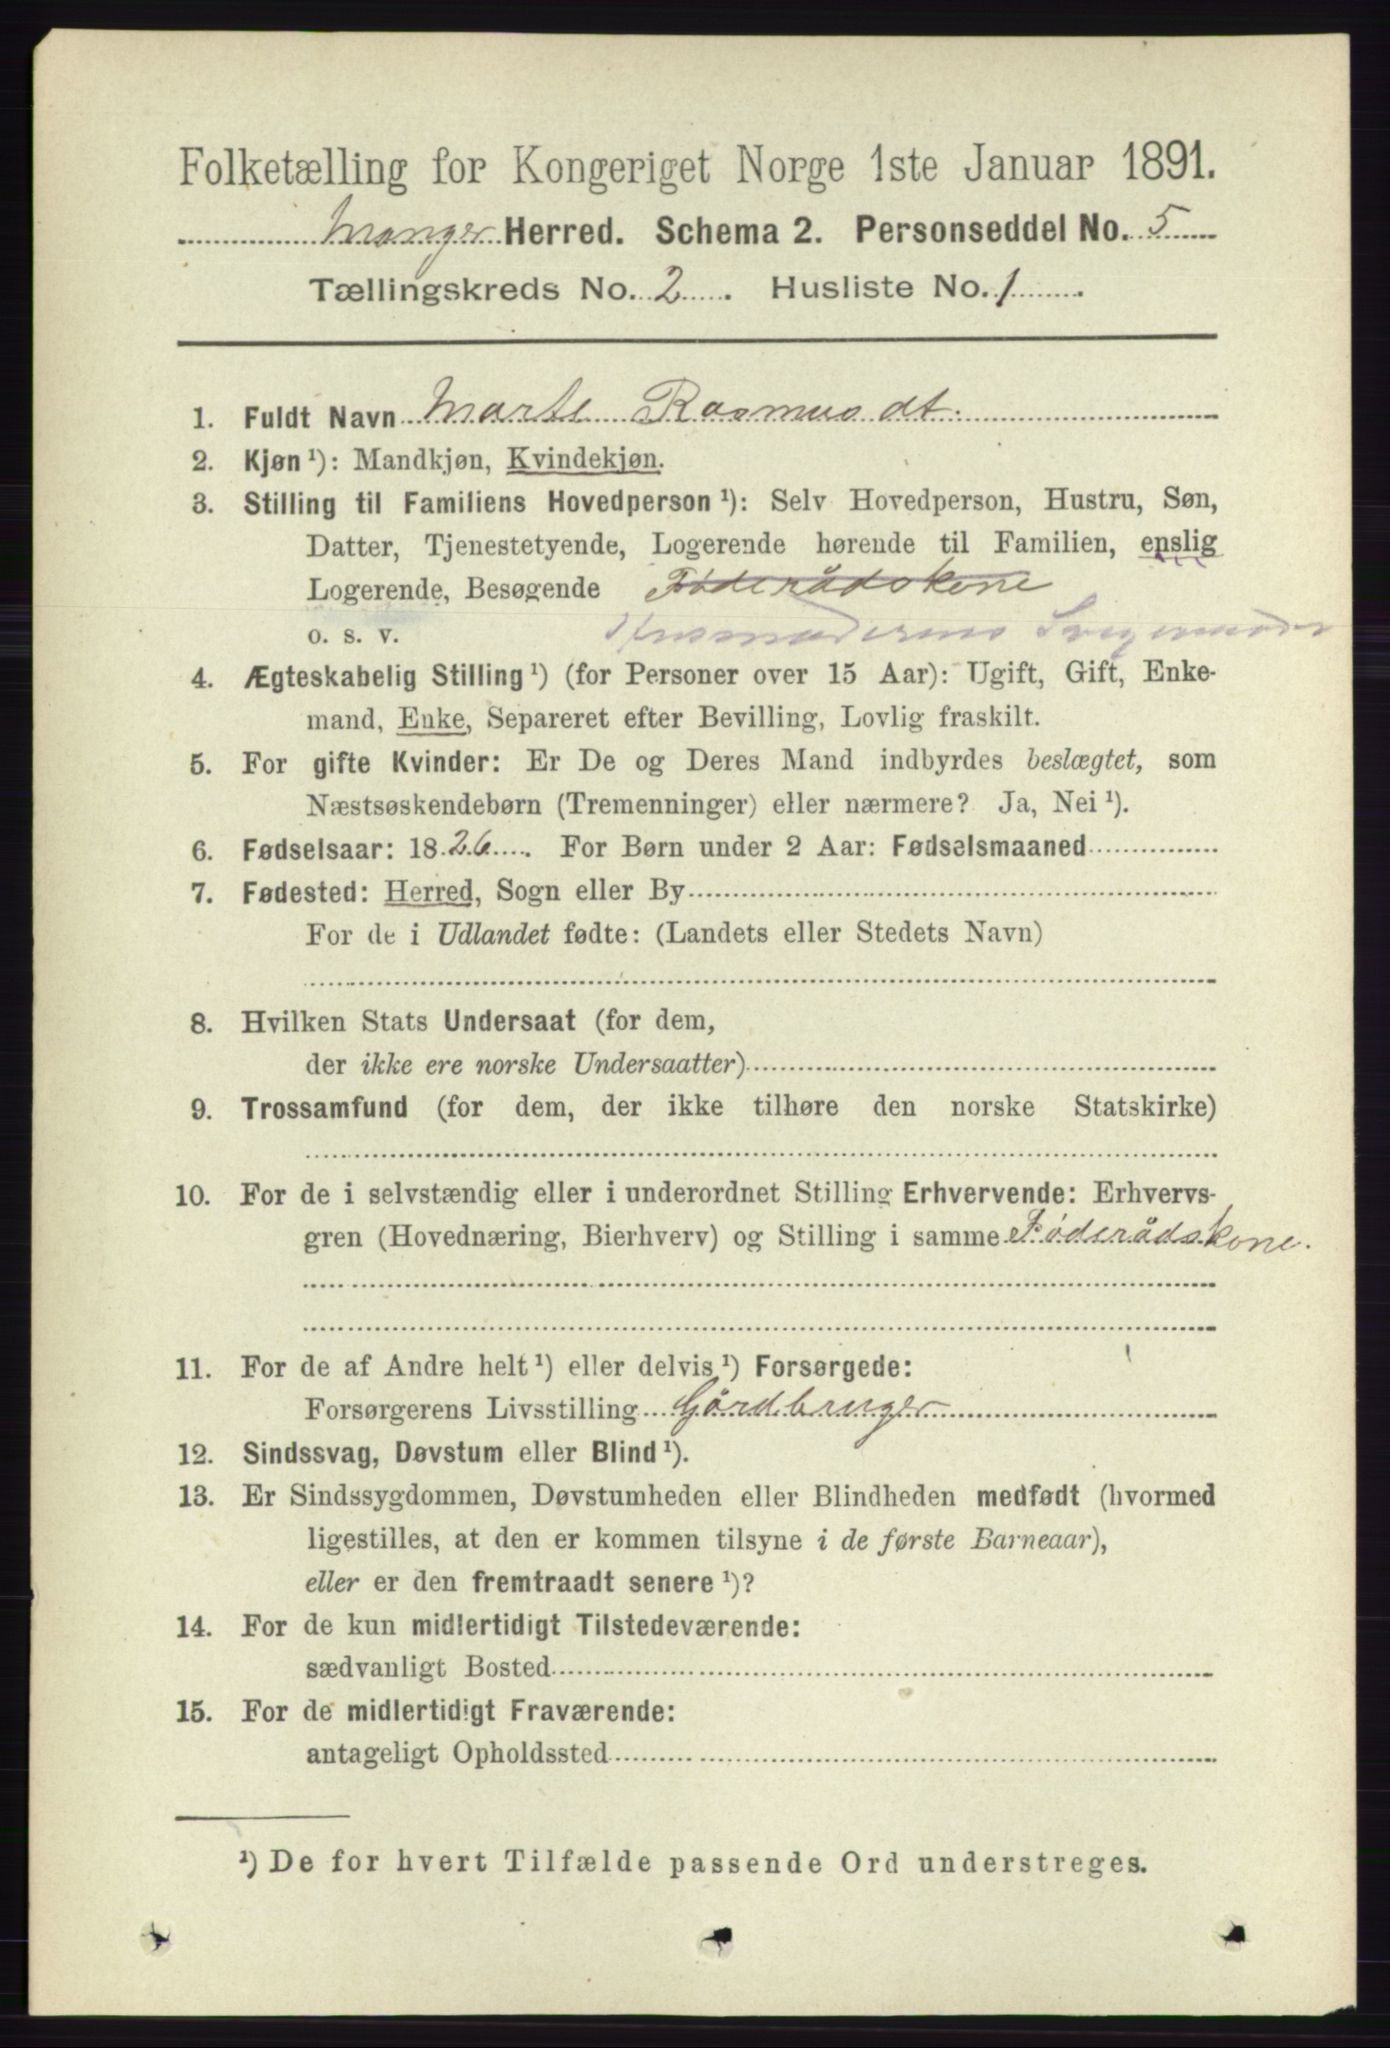 Folketælling for Kongeriget Norge 1ste Januar 1891.
Manger Herred. Schema 2. Personseddel No. 5
Tællingskreds No. 2. Husliste No. 1.
1. Fuldt Navn Marte Rasmusdt.
2. Kjøn ¹): Mandkjøn, Kvindekjøn.
3. Stilling til Familiens Hovedperson ¹): Selv Hovedperson, Hustru, Søn,
Datter, Tjenestetyende, Logerende hørende til Familien, enslig
Logerende, Besøgende Føderådskone
o. s. v. Husmoderens Svigermoder
4. Ægteskabelig Stilling ¹) (for Personer over 15 Aar): Ugift, Gift, Enke-
mand, Enke, Separeret efter Bevilling, Lovlig fraskilt.
5. For gifte Kvinder: Er De og Deres Mand indbyrdes beslægtet, som
Næstsøskendebørn (Tremenninger) eller nærmere? Ja, Nei ¹).
6. Fødselsaar: 1826. For Børn under 2 Aar: Fødselsmaaned
7. Fødested: Herred, Sogn eller By
For de i Udlandet fødte: (Landets eller Stedets Navn)
8. Hvilken Stats Undersaat (for dem,
der ikke ere norske Undersaatter)
9. Trossamfund (for dem, der ikke tilhøre den norske Statskirke)
10. For de i selvstændig eller i underordnet Stilling Erhvervende: Erhvervs-
gren (Hovednæring, Bierhverv) og Stilling i samme Føderådskone.
11. For de af Andre helt ¹) eller delvis ¹) Forsørgede:
Forsørgerens Livsstilling Gårdbruger
12. Sindssvag, Døvstum eller Blind ¹).
13. Er Sindssygdommen, Døvstumheden eller Blindheden medfødt (hvormed
ligestilles, at den er kommen tilsyne i de første Barneaar),
eller er den fremtraadt senere ¹)?
14. For de kun midlertidigt Tilstedeværende:
sædvanligt Bosted
15. For de midlertidigt Fraværende:
antageligt Opholdssted
¹) De for hvert Tilfælde passende Ord understreges.